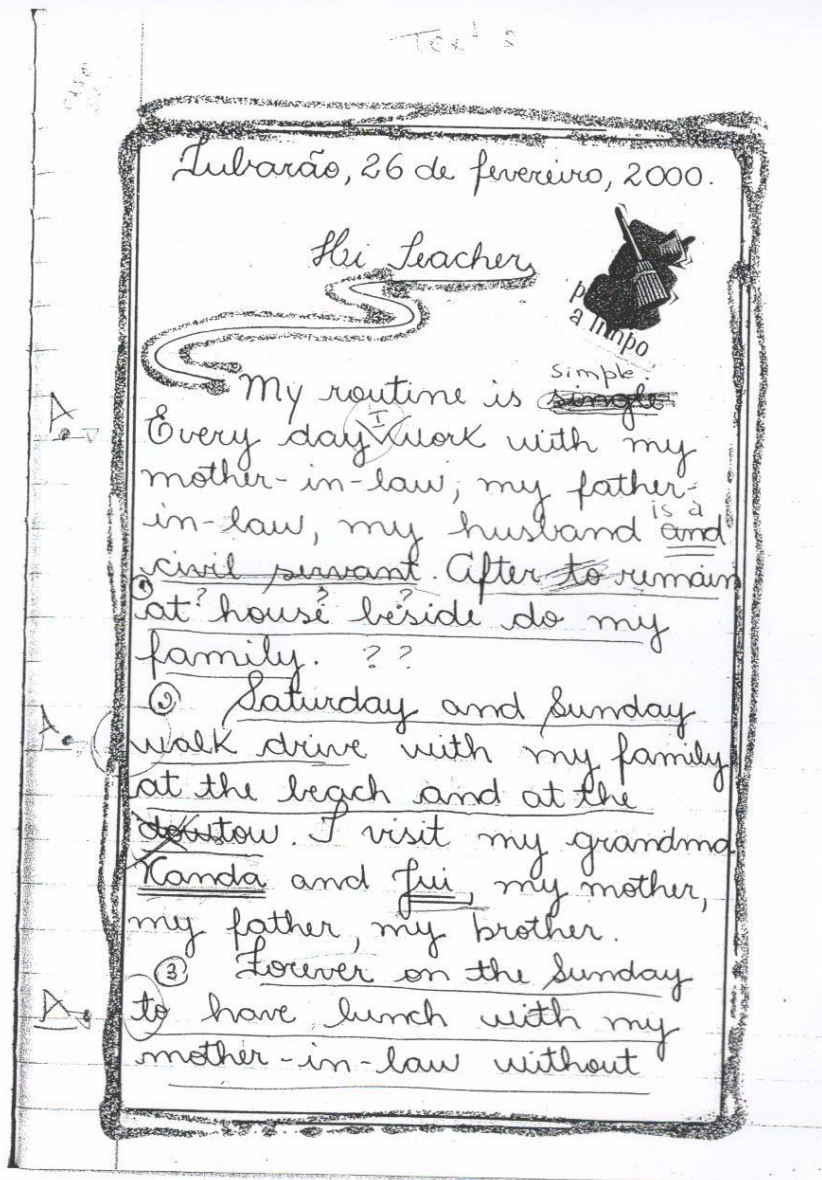 Text 2
Tubarão, 26 de fevereiro, 2000.
Hi Teacher,
a limpo
simple.
My routine is single.
I
Every day work with my
mother-in-law, my father-
is a
in-law, my husband and
civil servant. After to remain
1 at ? house ? beside ? do my
family. ??
2 Saturday and Sunday
walk drive with my family
at the beach and at the
dowtow. I visit my grandma
Vanda and Jui, my mother,
my father, my brother.
3 Forever on the Sunday
to have lunch with my
mother-in-law without